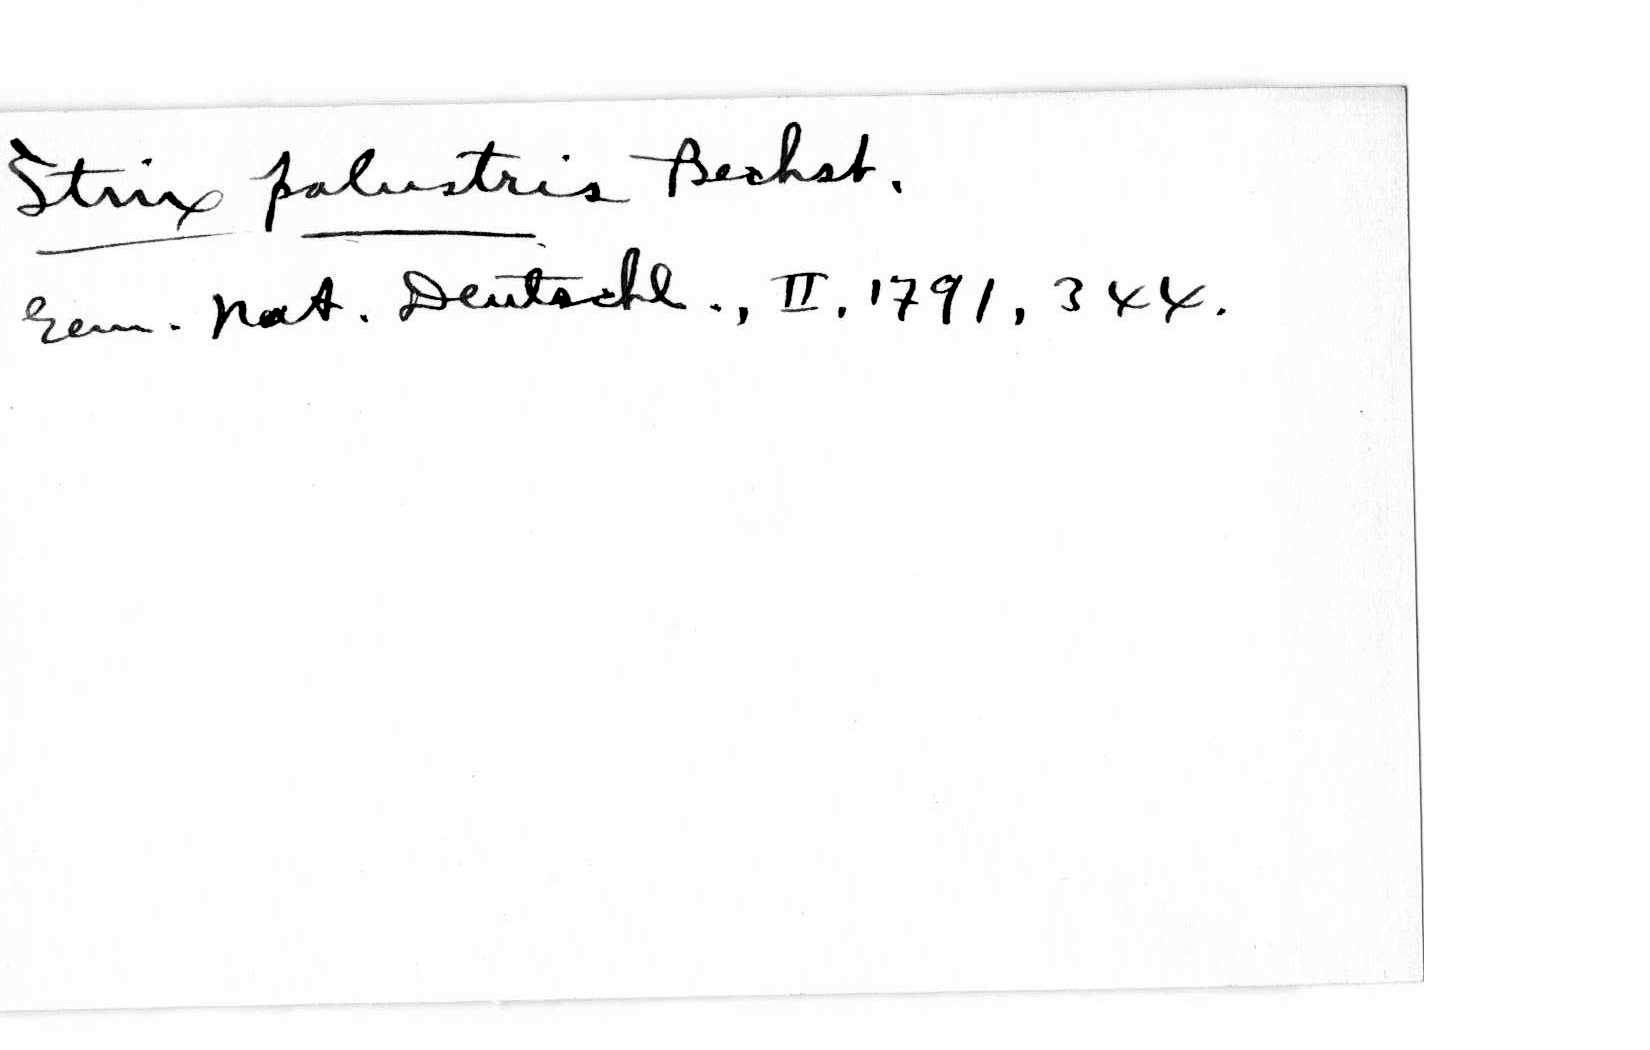 Strix palustris Bechst.
Gem. Nat. Deutschl., II, 1791, 344.